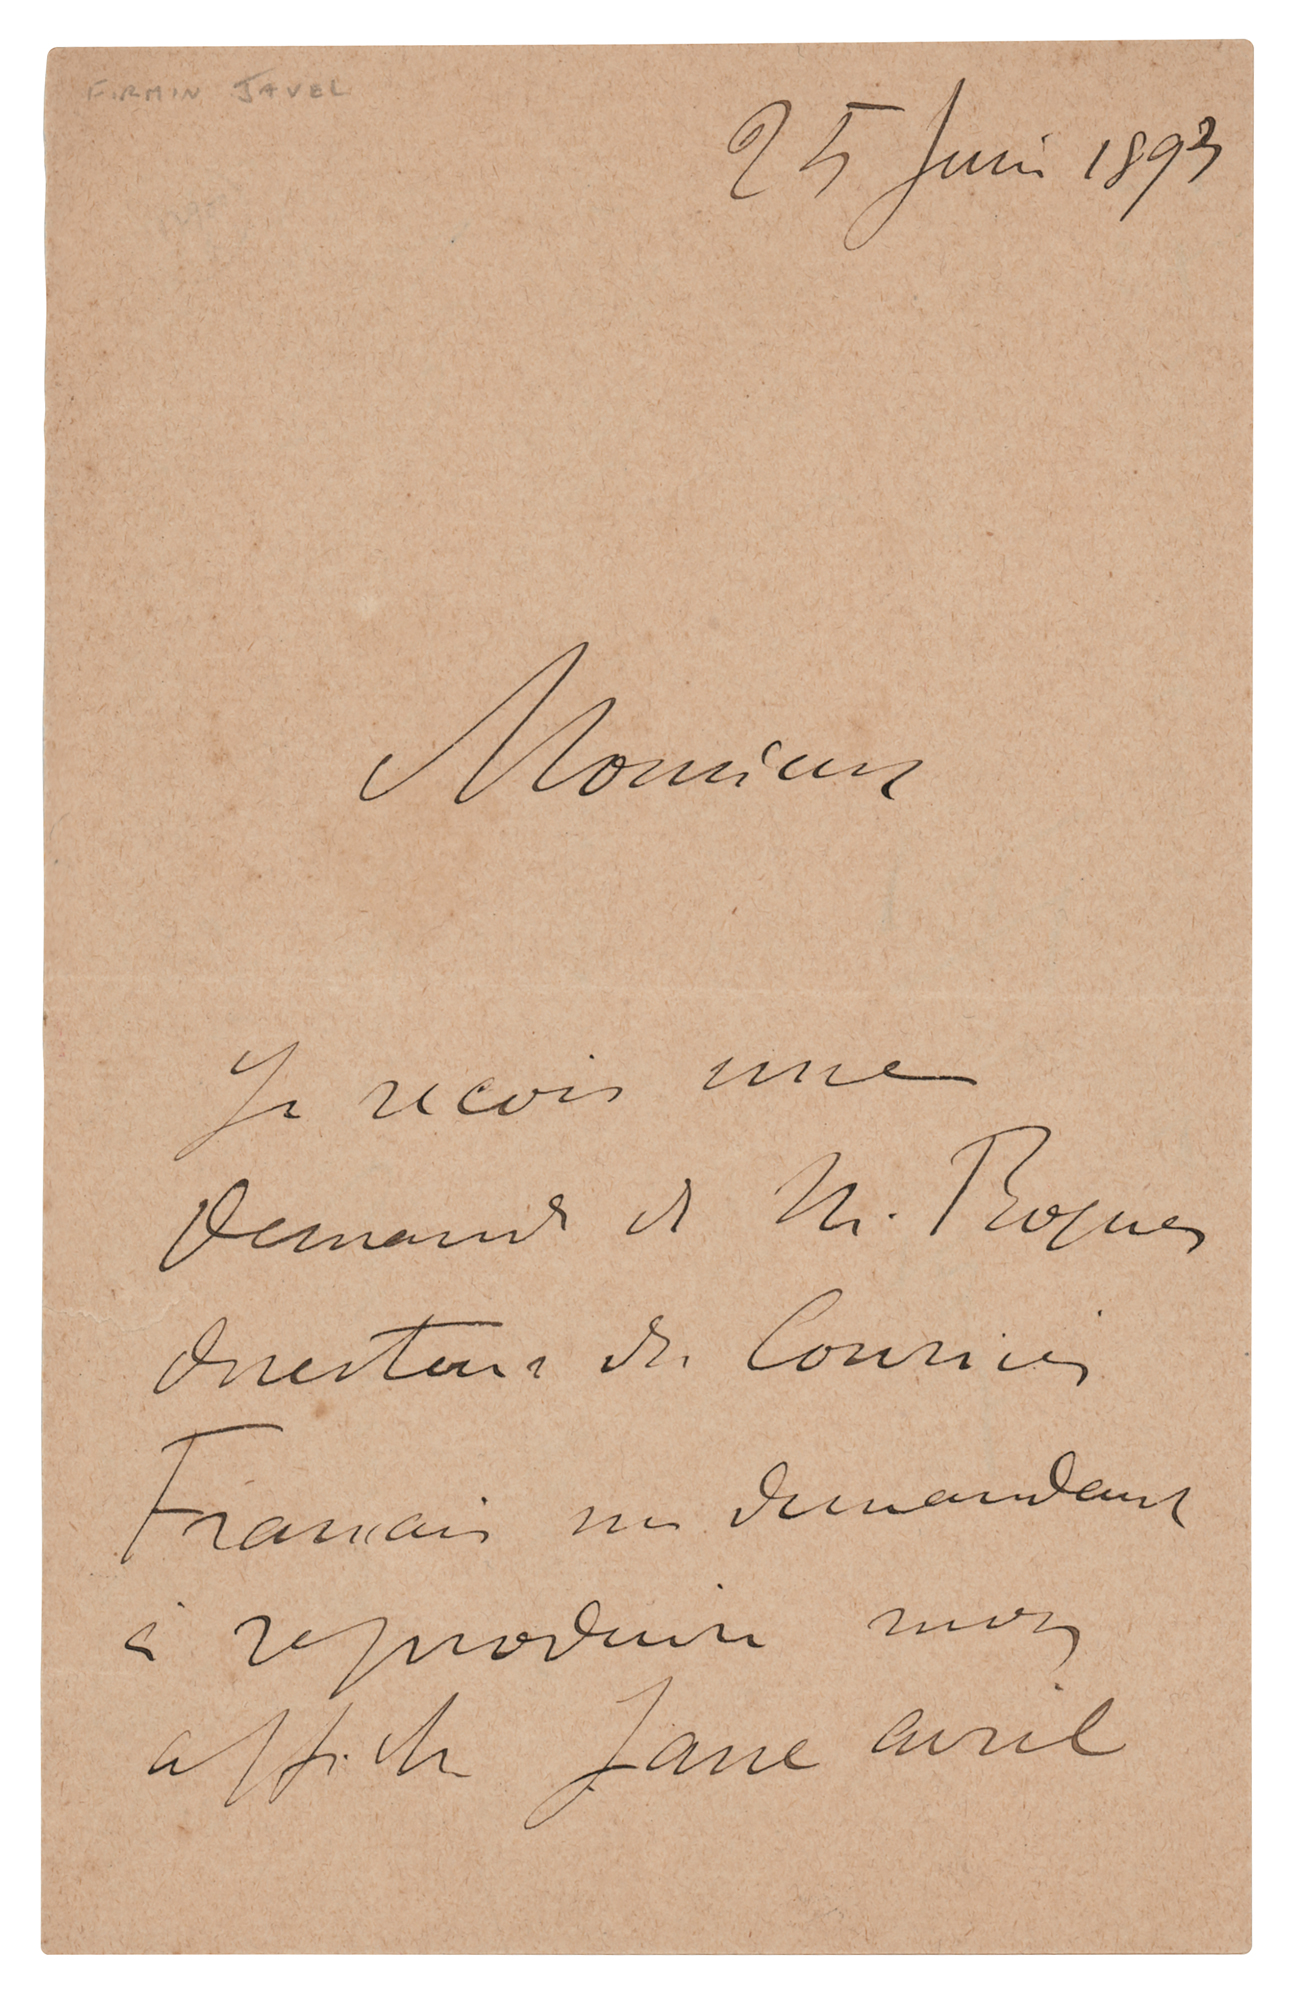 FIRMIN JAVEL
25 Juin 1893
Monsieur
Je recois une
demande de M. Roques
directeur du Courrier
Francais me demandant
à reproduire mon
affiche Jane avril